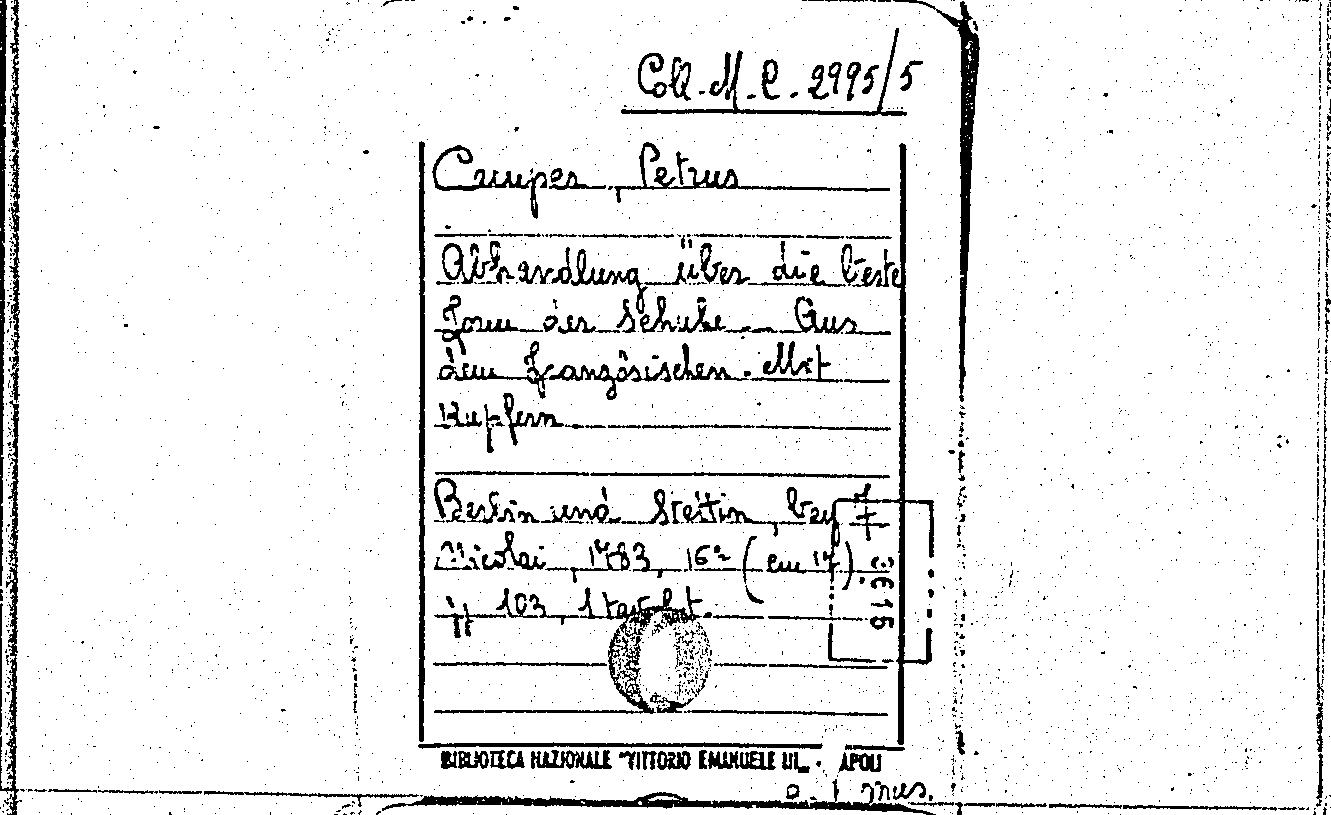 Coll. M. C. 2995/5
Camper, Petrus
Abhandlung über die beste
Form der Schuhe. Aus
dem Französischen. Mit
Kupfern.
Berlin und Stettin, bey F
Nicolai, 1783, 16° (cm 17).
pp 103, 1 tav.
3 € 15
BIBLIOTECA NAZIONALE "VITTORIO EMANUELE III" - APOLI
mus.